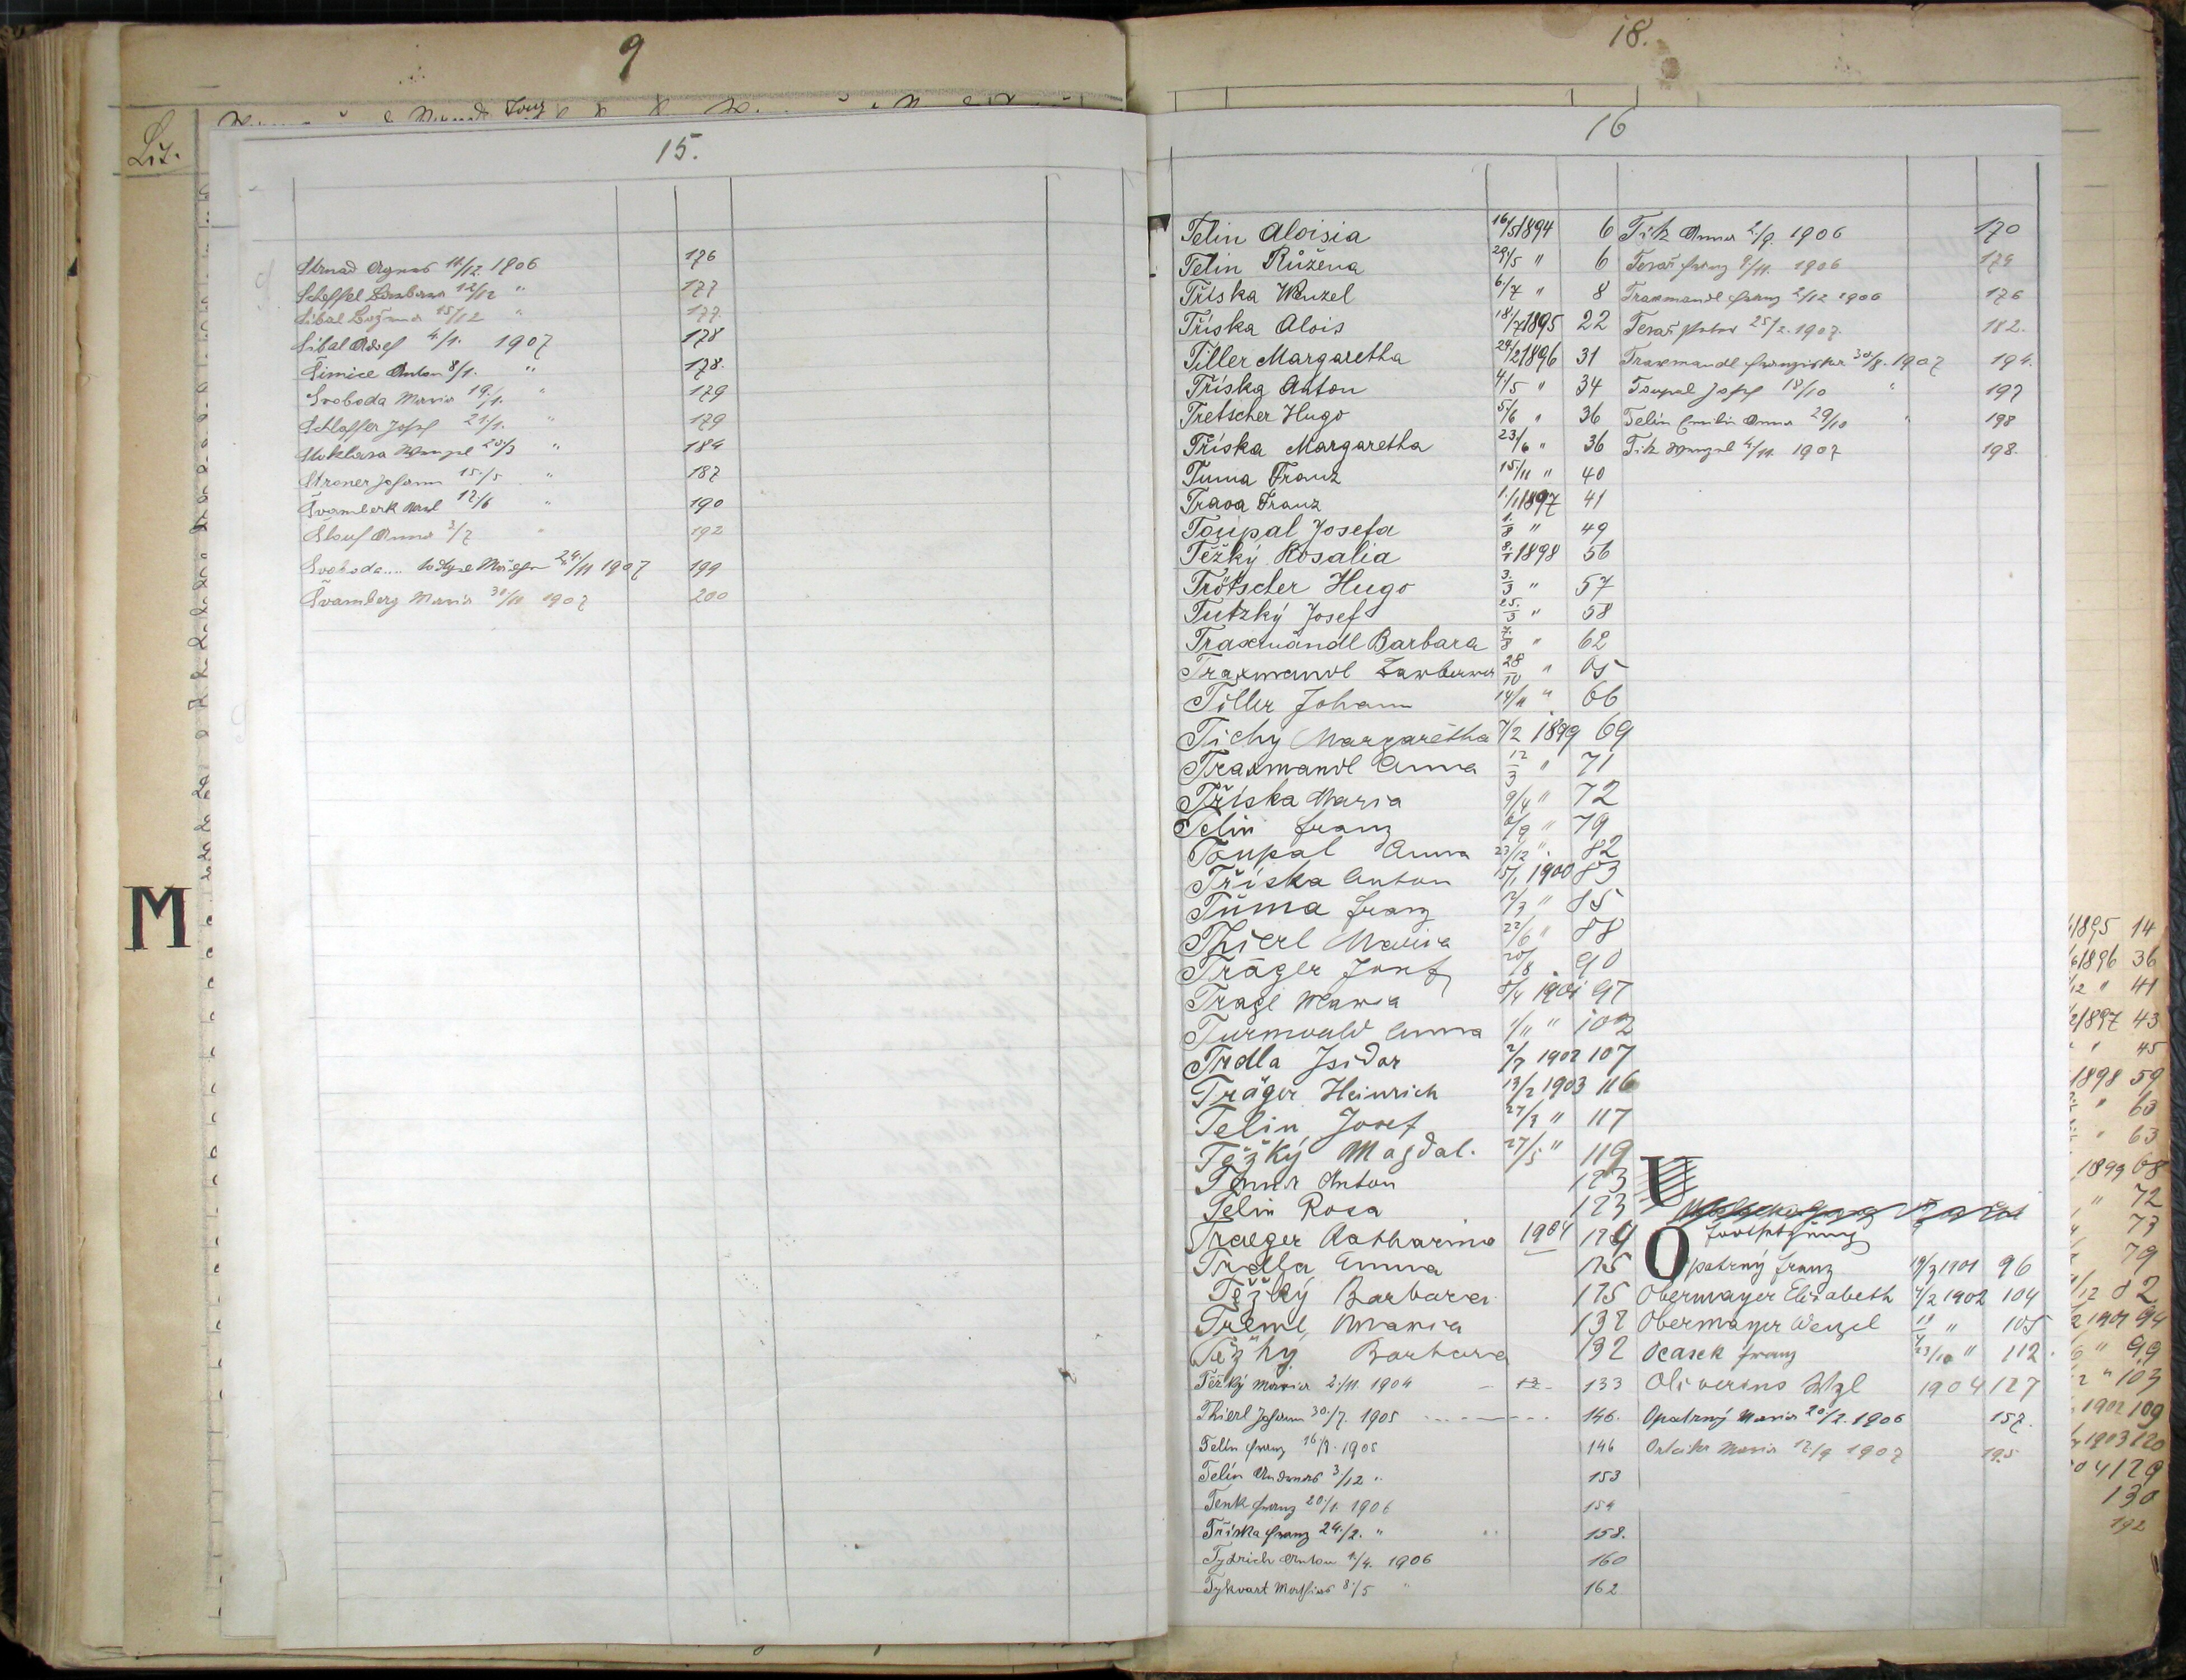 9
Lit.
M
15.
Strnad Agnes 11./12. 1906 176
Scheffel Barbara 12/12 " 177
Sibal Božena 15/12 " 177.
Sibal Adolf 4/1. 1907 178
Šimice Anton 8/1. " 178.
Svoboda Maria 19./1. " 179
Schlaffer Josef 21/1. " 179
Stoklasa Wenzel 20./3 " 184
Stroner Johann 15./5 " 187
Švamberk Karl 12./6 " 190
Anna 3/7 " 192
Svoboda.... 24./11 1907 199
Švamberg Maria 30/11 1907 200
18.
16
Telin Aloisia 16/5 1894 6
Telin Růžena 29/5 " 6
Tříska Wenzel 6/7 " 8
Tříska Alois 18/7 1895 22
Tiller Margaretha 24/2 1896 31
Tříska Anton 4/5 " 34
Tretscher Hugo 5/6 " 36
Tříska Margaretha 23/6 " 36
Tuma Franz 15/11 " 40
Trava Franz 1./1 1897 41
Toupal Josefa 1./8 " 49
Těžký Rosalia 8./1 1898 56
Trötscher Hugo 3./3 " 57
Tutzký Josef 25./3 " 58
Traxmandl Barbara 7./8 " 62
Traxmandl Barbara 28/10 " 65
Tiller Johann 14/11 " 66
Tichý Margaretha 7/2 1899 69
Traxmandl Anna 12/3 " 71
Tříska Maria 9/4 " 72
Telin Franz 6/9 " 79
Toupal Anna 23/12 " 82
Tříska Anton 15/1 1900 83
Tůma Franz 2/3 " 85
Thierl Maria 22/6 " 88
Träger Josef 20/8 90
Tragl Maria 8/4 1901 97
Turnwald Anna 1/11 " 102
Trdla Isidor 2/7 1902 107
Träger Heinrich 13/2 1903 116
Telin Josef 27/3 " 117
Těžký Magdal. 27/5 " 119
Anton 123
Telin Rosa 123
Traeger Katharina 1904 124
Trdla Emma 125
Těžký Barbara 125
Treml Maria 132
Těžký Barbara 132
Těžký Maria 2./11. 1904 133
Thierl Johann 30./7. 1905 146.
Telín Franz 16/8. 1905 146
Telín Andreas 3/12 " 153
Tenk Franz 20./1. 1906 154
Tříska Franz 24./2. " 158.
Tydrich Anton 1./4. 1906 160
Tykvart Mathias 8./5 " 162
Titz Anna 2./9. 1906 170
Teraš Franz 9/11. 1906 174
Traxmandl Franz 2/12 1906 176
Teraš Peter 25/2. 1907. 182.
Traxmandl Franziska 30/8. 1907 194.
Toupal Josef 18/10 " 197
Telín Emilie Anna 29/10 " 198
Titz Wenzel 4/11. 1907 198.
U
Fortsetzung
Opatrný Franz 19/3 1901 96
Obermayer Elisabeth 7/2 1902 104
Obermayer Wenzel 11/4 " 105
Ocasek Franz 23/10 " 112.
Oliverius Wzl 1904 127
Opatrný Maria 20/2. 1906 157.
Maria 12/9 1907 195
1895 14
1896 36
12 " 41
1897 43
" 45
1898 59
" 63
" 63
1899 68
" 72
73
79
12 82
1901 94
" 99
" 103
1902 109
1903 120
04 129
130
192